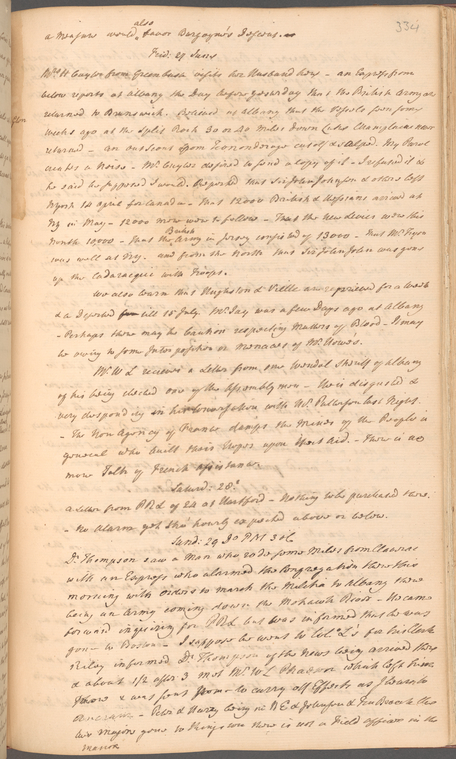 334
also
a Measure would favor Burgoyne's Designs.
Frid: 27 June
Mrs H Cuyler from Greenbush visits her Husband here - an Express from
below reports at Albany the Day before yesterday that the British Army are
returned to Brunswick. Believed at Albany that the Vessels seen some
Weeks ago at the Split Rock 30 or 40 Miles down Lake Champlain never
returned - an out from Ticonderoga cut off & scalped. My Parole
creates a Noise - Mr Cuyler desired to send a Copy of it - I refused it as
he said he supposed I would. Reported that Sir John Johnson & others left
N York 14 for Canada - that 12000 British & Hessians arrived at
NY in May - 12000 more were to follow - that the New Levies were this
Month 10,000 - that the British Army in Jersey consisted of 13000 - that Mr Tryon
was well at NY. and from the North that Sir John Johnson was gone
up the Cadaracque with Troops.
We also learn that Hughston & Vittle are reprieved for a Week
& a Deserter till 15 July. Mr Jay was a few Days ago at Albany
- Perhaps there may be Caution respecting Matters of Blood - It may
be owing to some Interposition or Menaces of Mr Howe's.
Mr W L receives a Letter from one Wendal Sheriff of Albany
of his being elected one of the Assembly men - He is disgusted &
very desponding in his Conversation with Wm Patterson last Night.
- The Non Agency of France damps the Minds of the People in
general who built their Hopes upon that Aid. - There is no
more Talk of French Assistance
Saturd: 28.
a Letter from P R L of 24 at Hartford - Nothing to be purchased there.
- No Alarm yet tho' hourly expected above or below.
Sund: 29 Do PM
Dr Thompson saw a Man who rode some Miles from Claverac
with an Express who alarmed the Congregation there this
Morning with Orders to march the Militia to Albany there
being an Army coming down the Mohawk River - He came
forward inquiring for P R L but was informed that he was
gone to Boston - I suppose he went to Col L's for his Clerk
Riley informed Dr Thompson of the News being arrived there
& about 1/2 after 3 met Mr W L Phaeton which left him
there & was sent Home to carry off Effects as I learn to
- Peter & Harry being in N E & Johnson & Ten Broeck the
two Majors gone to Kingston there is not a Field Officer in the
Manor